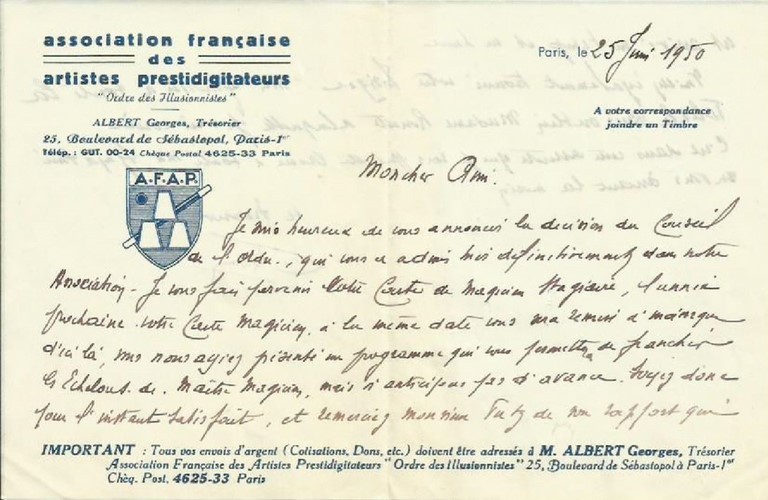 association française
des
artistes prestidigitateurs
"Ordre des Illusionnistes"
ALBERT Georges, Trésorier
25, Boulevard de Sébastopol, Paris-1er
Télép. : GUT. 00-24 Chèque Postal 4625-33 Paris
A.F.A.P.
Paris, le 25 Juin 1950
A votre correspondance
joindre un Timbre
Mon cher Ami.
Je suis heureux de vous annoncer la décision du Conseil
de l'ordre, qui vous a admis définitivement dans notre
Association - Je vous fais parvenir votre Carte de Magicien Stagiaire, l'année
prochaine votre Carte Magicien, à la même date vous sera remise à moins que
d'ici là, vous nous ayiez présenté un programme qui vous permettra de franchir
les Echelons de Maître Magicien, mais n'anticipons pas d'avance. Soyez donc
pour l'instant satisfait, et remerciez monsieur de son rapport qui
IMPORTANT : Tous vos envois d'argent (Cotisations, Dons, etc.) doivent être adressés à M. ALBERT Georges, Trésorier
Association Française des Artistes Prestidigitateurs "Ordre des Illusionnistes" 25, Boulevard de Sébastopol à Paris-1er
Chèq. Post. 4625-33 Paris